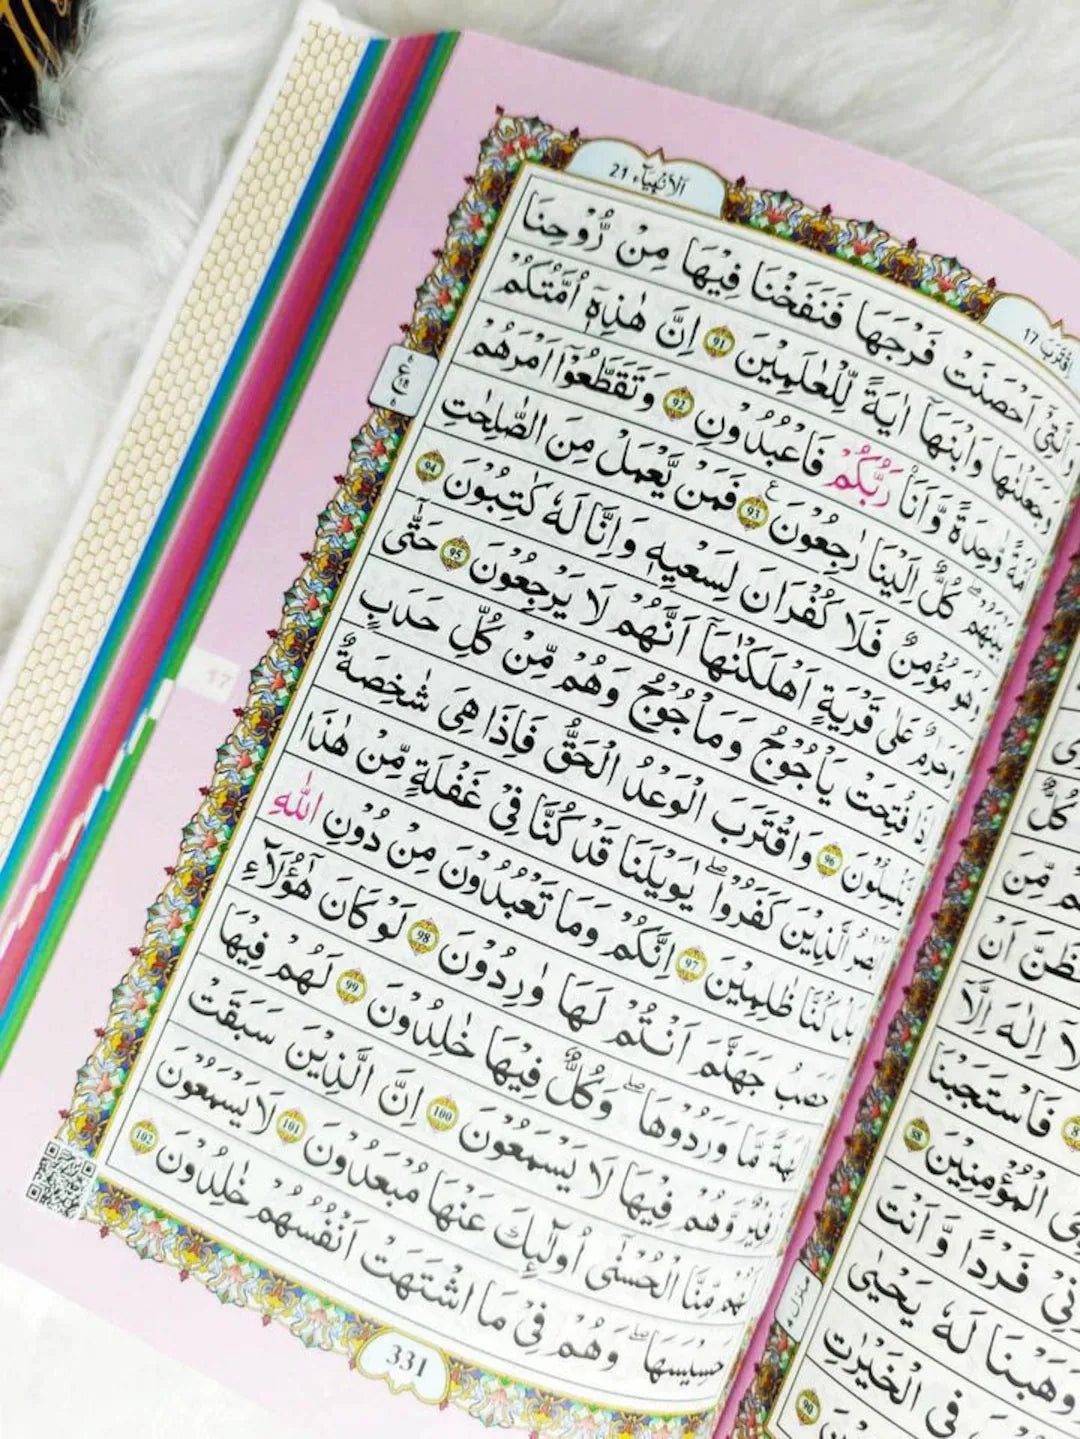 اَلْاَنْۢبِيَآء 21
اِقْتَرَبَ 17
وَالَّتِىْٓ اَحْصَنَتْ فَرْجَهَا فَنَفَخْنَا فِيْهَا مِنْ رُّوْحِنَا
وَجَعَلْنٰهَا وَابْنَهَآ اٰيَةً لِّلْعٰلَمِيْنَ 91 اِنَّ هٰذِهٖٓ اُمَّتُكُمْ
اُمَّةً وَّاحِدَةً وَّاَنَا۠ رَبُّكُمْ فَاعْبُدُوْنِ 92 وَتَقَطَّعُوْٓا اَمْرَهُمْ
بَيْنَهُمْ ۖ كُلٌّ اِلَيْنَا رٰجِعُوْنَ 93 ع فَمَنْ يَّعْمَلْ مِنَ الصّٰلِحٰتِ
وَهُوَ مُؤْمِنٌ فَلَا كُفْرَانَ لِسَعْيِهٖ وَاِنَّا لَهٗ كٰتِبُوْنَ 94
وَحَرٰمٌ عَلٰى قَرْيَةٍ اَهْلَكْنٰهَآ اَنَّهُمْ لَا يَرْجِعُوْنَ 95 حَتّٰىٓ
اِذَا فُتِحَتْ يَاْجُوْجُ وَمَاْجُوْجُ وَهُمْ مِّنْ كُلِّ حَدَبٍ
يَّنْسِلُوْنَ 96 وَاقْتَرَبَ الْوَعْدُ الْحَقُّ فَاِذَا هِىَ شٰخِصَةٌ
اَبْصٰرُ الَّذِيْنَ كَفَرُوْا ۖ يٰوَيْلَنَا قَدْ كُنَّا فِىْ غَفْلَةٍ مِّنْ هٰذَا
بَلْ كُنَّا ظٰلِمِيْنَ 97 اِنَّكُمْ وَمَا تَعْبُدُوْنَ مِنْ دُوْنِ اللّٰهِ
حَصَبُ جَهَنَّمَ اَنْتُمْ لَهَا وٰرِدُوْنَ 98 لَوْ كَانَ هٰٓؤُلَآءِ
اٰلِهَةً مَّا وَرَدُوْهَا ۖ وَكُلٌّ فِيْهَا خٰلِدُوْنَ 99 لَهُمْ فِيْهَا
زَفِيْرٌ وَّهُمْ فِيْهَا لَا يَسْمَعُوْنَ 100 اِنَّ الَّذِيْنَ سَبَقَتْ
لَهُمْ مِّنَّا الْحُسْنٰٓى اُولٰٓئِكَ عَنْهَا مُبْعَدُوْنَ 101 لَا يَسْمَعُوْنَ
حَسِيْسَهَا ۖ وَهُمْ فِىْ مَا اشْتَهَتْ اَنْفُسُهُمْ خٰلِدُوْنَ 102
331
17
كُلٌّ
مِّنَ
اَنْ
اِلٰهَ اِلَّا
فَاسْتَجَبْنَا
الْمُؤْمِنِيْنَ 88
فَرْدًا وَّاَنْتَ
وَهَبْنَا لَهٗ يَحْيٰى
فِى الْخَيْرٰتِ
90